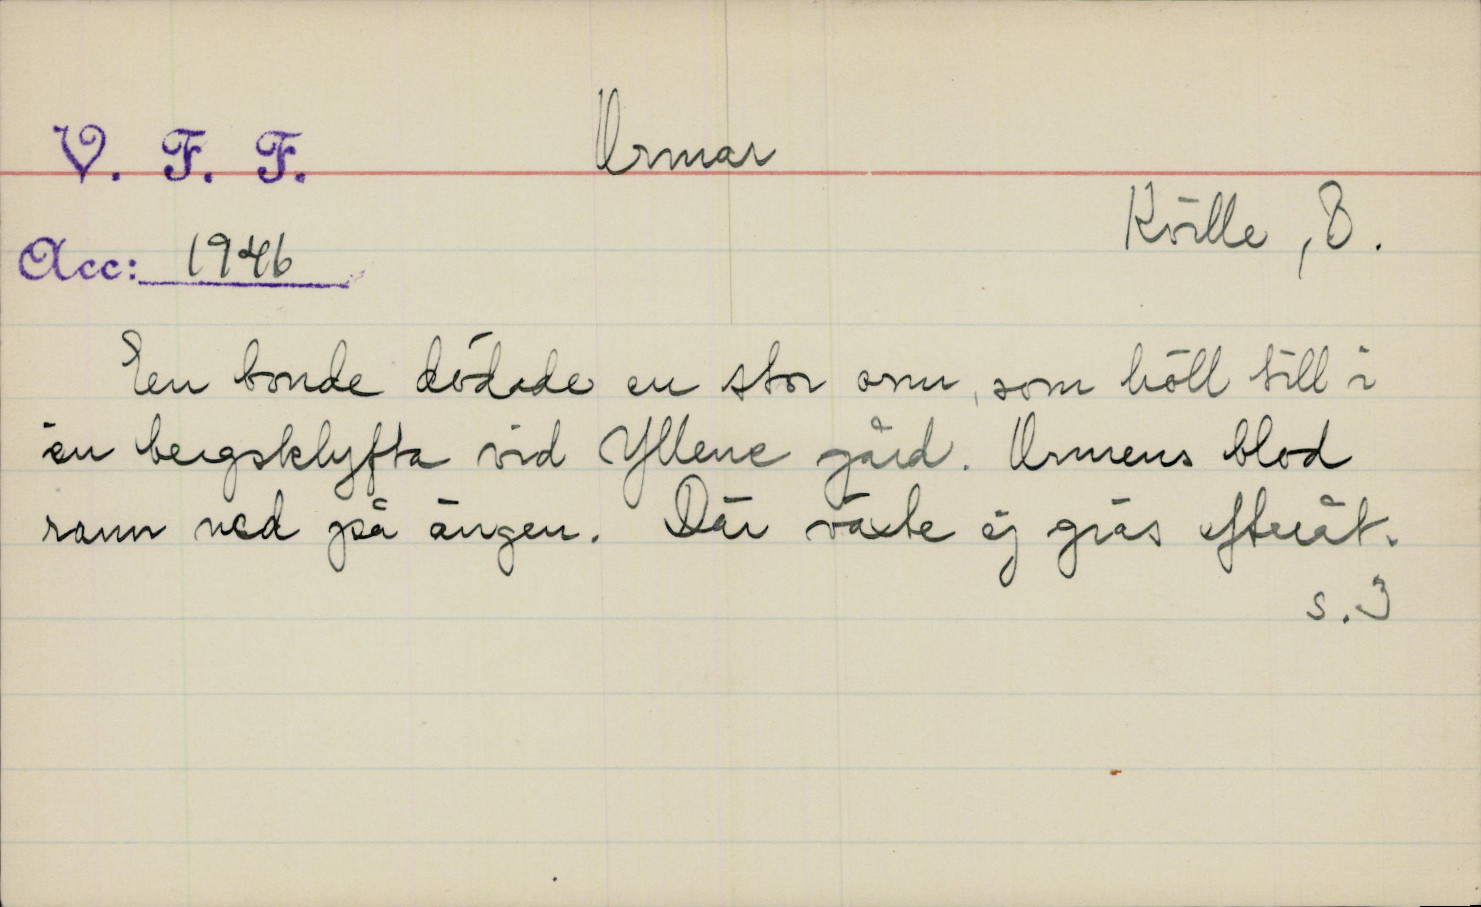 V. F. F.
Ormar
Kville, B.
Acc: 1946
En bonde dödade en stor orm, som höll till i
en bergsklyfta vid Yllene gård. Ormens blod
rann ned på ängen. Där växte ej gräs efteråt.
s. 3